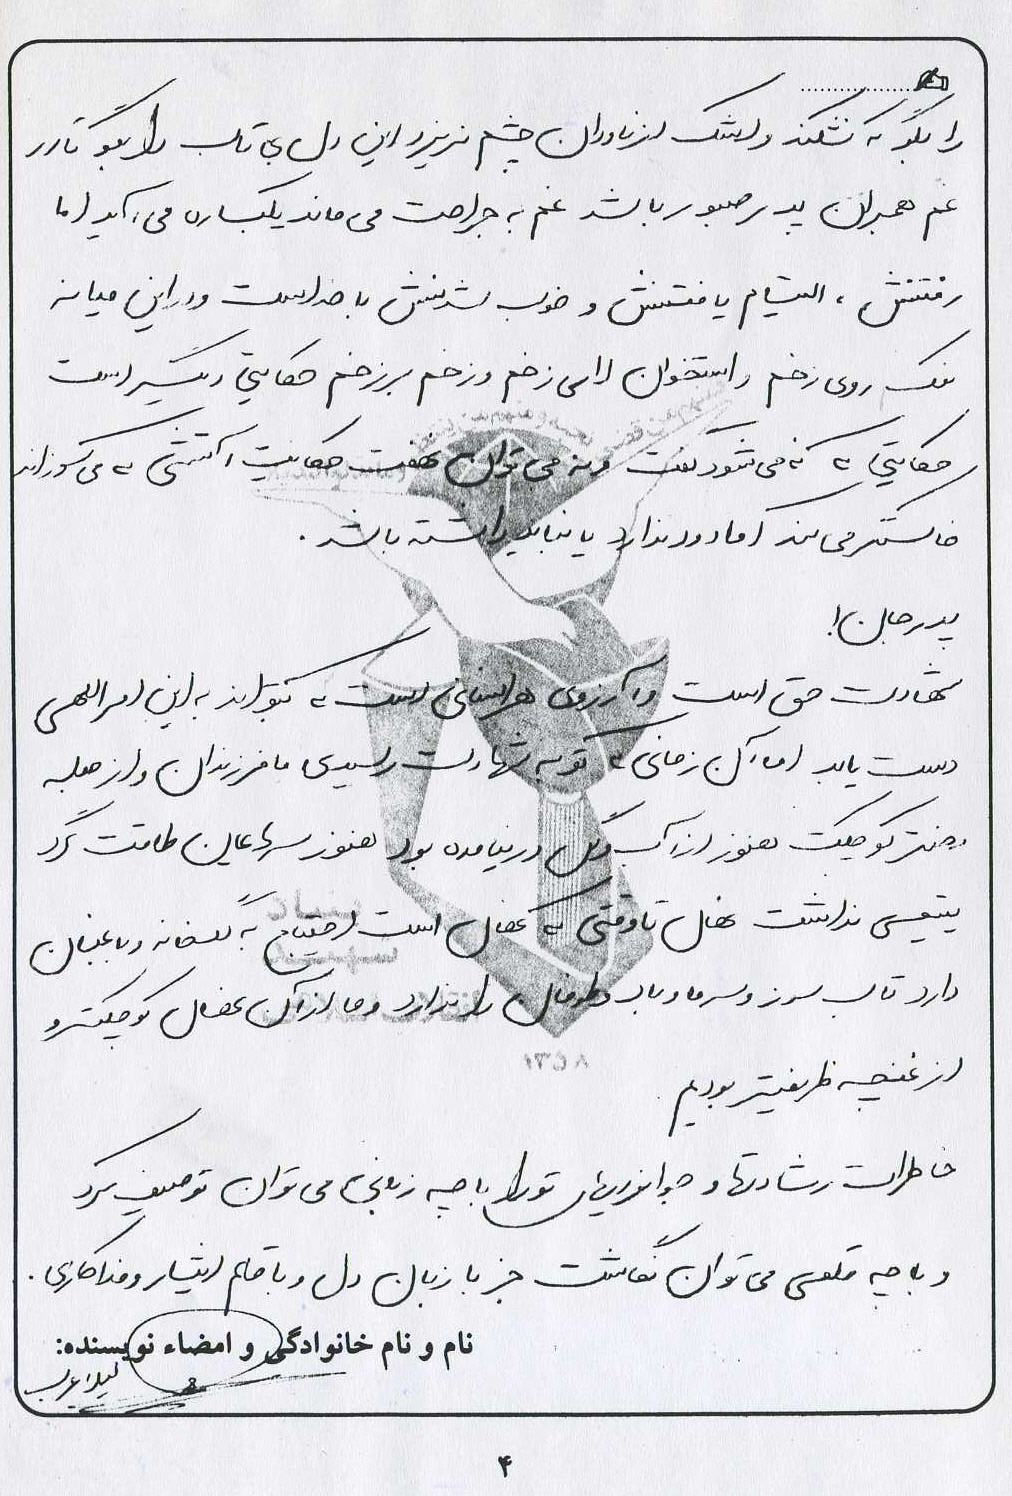 را بگو که نشکند و اشک از ناودان چشم نریزد این دل بی تاب را بگو تا در
غم هجران پدر صبور باشد غم به جراحت می ماند یکباره می آید اما
رفتنش، التیام یافتنش و خوب شدنش با خداست و در این میانه
نمک روی زخم و استخوان لای زخم و زخم بر زخم حکایتی دیگر است
حکایتی که نه می شود گفت و نه می توان نهفت حکایت آتشی که می سوزاند
خاکستر می کند اما دود ندارد یا نباید داشته باشد.
پدر جان!
شهادت حق است و آرزوی هر انسانی است که بتواند به این امر الهی
دست یابد اما آن زمانی که تو به شهادت رسیدی ما فرزندان و از جمله
دختر کوچکت هنوز از آب و گل در نیامده بود هنوز سرهایمان طاقت گرد
یتیمی نداشت نهال تا وقتی که نهال است احتیاج به گلخانه و باغبان
دارد تاب سوز و سرما و باد و طوفان را ندارد و ما از آن نهال کوچکتر و
از غنچه ظریفتر بودیم
خاطرات رشادتها و جوانمردیهای تو را با چه زبانی می توان توصیف کرد
و با چه قلمی می توان نگاشت جز با زبان دل و با قلم ایثار و فداکاری.
نام و نام خانوادگی و امضاء نویسنده:
لیلا عرب
۴